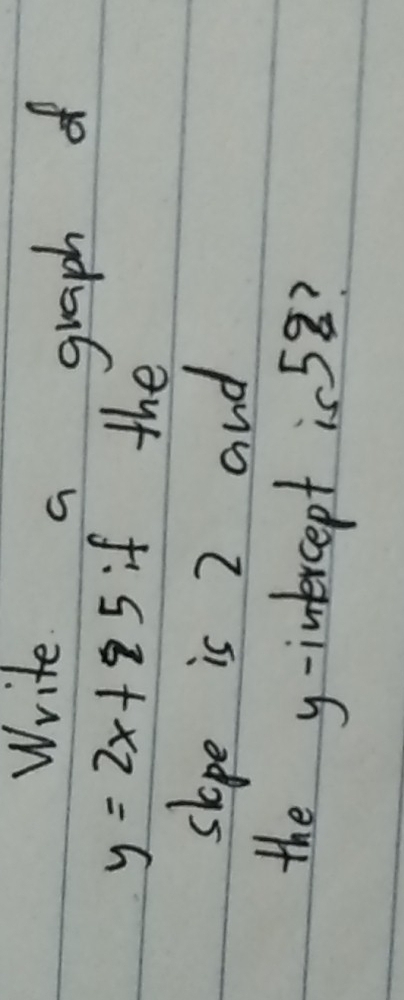 Write a graph of
y = 2x + 5 if the
slope is 2 and
the y-intercept is 5?